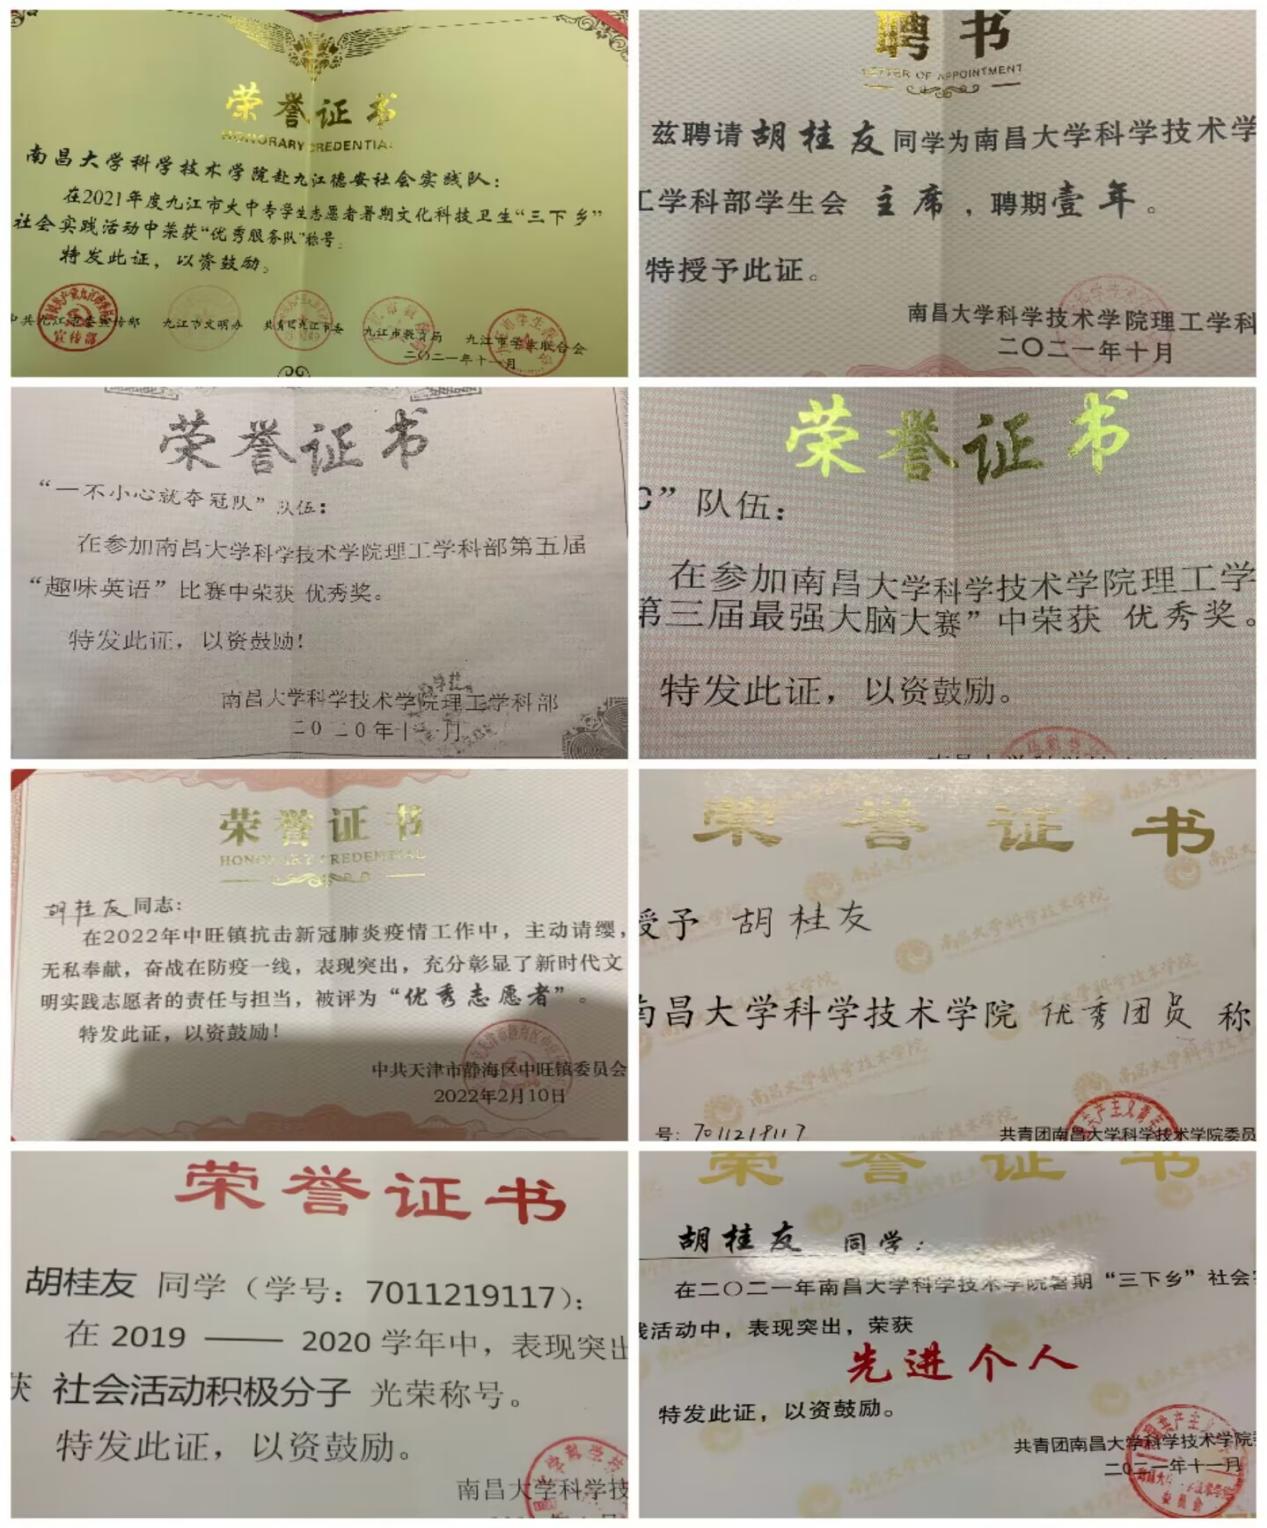 荣誉证书
HONORARY CREDENTIAL
南昌大学科学技术学院赴九江德安社会实践队：
在2021年度九江市大中专学生志愿者暑期文化科技卫生“三下乡”
社会实践活动中荣获“优秀服务队”称号。
特发此证，以资鼓励。
中共九江市委宣传部 九江市文明办 共青团九江市委 九江市教育局 九江市学生联合会
二〇二一年十一月
聘书
LETTER OF APPOINTMENT
兹聘请胡桂友同学为南昌大学科学技术学
工学科部学生会 主席，聘期壹年。
特授予此证。
南昌大学科学技术学院理工学科
二〇二一年十月
荣誉证书
“一不小心就夺冠队”队伍：
在参加南昌大学科学技术学院理工学科部第五届
“趣味英语”比赛中荣获 优秀奖。
特发此证，以资鼓励！
南昌大学科学技术学院理工学科部
二〇二〇年十一月
荣誉证书
C”队伍：
在参加南昌大学科学技术学院理工学
第三届最强大脑大赛”中荣获 优秀奖。
特发此证，以资鼓励。
荣誉证书
HONORARY CREDENTIAL
胡桂友同志：
在2022年中旺镇抗击新冠肺炎疫情工作中，主动请缨，
无私奉献，奋战在防疫一线，表现突出，充分彰显了新时代文
明实践志愿者的责任与担当，被评为“优秀志愿者”。
特发此证，以资鼓励！
中共天津市静海区中旺镇委员会
2022年2月10日
荣誉证书
授予 胡桂友
南昌大学科学技术学院 优秀团员 称
号：7011219117
共青团南昌大学科学技术学院委员
荣誉证书
胡桂友 同学（学号：7011219117）：
在 2019 —— 2020 学年中，表现突出
获 社会活动积极分子 光荣称号。
特发此证，以资鼓励。
南昌大学科学技
荣誉证书
胡桂友 同学：
在二〇二一年南昌大学科学技术学院暑期“三下乡”社会实
践活动中，表现突出，荣获
先进个人
特发此证，以资鼓励。
共青团南昌大学科学技术学院委
二〇二一年十一月